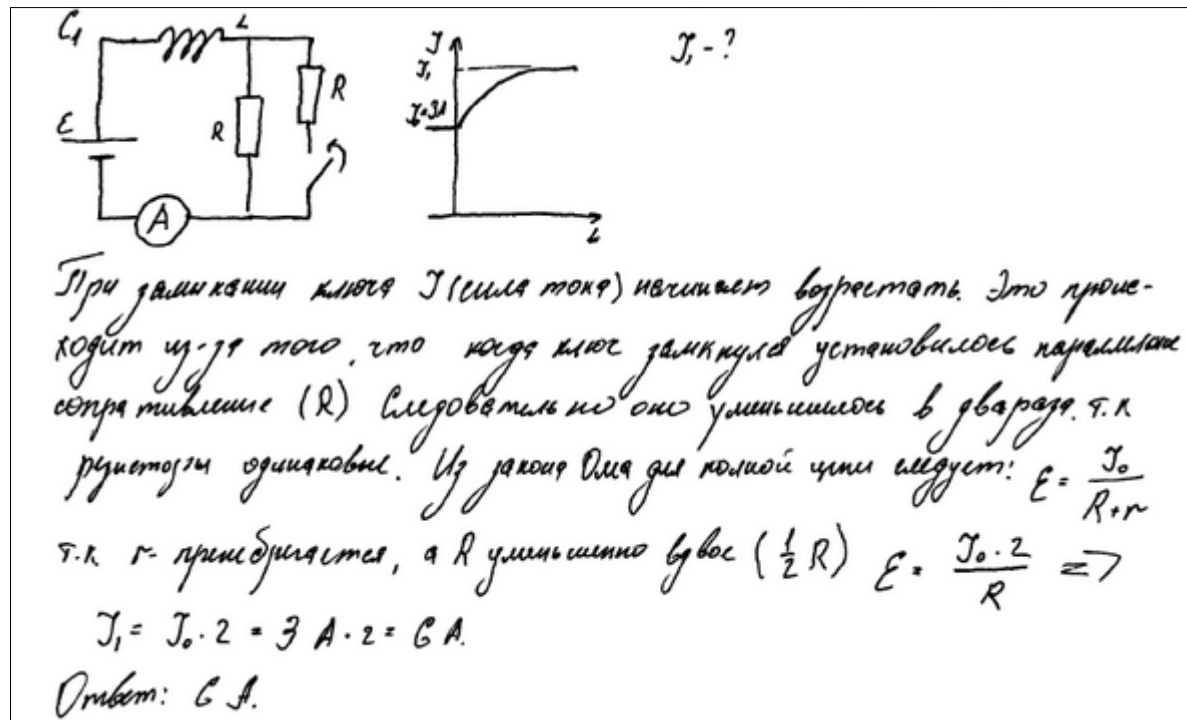 C1
L
R
R
ε
A
J
J₁
J₀=3A
t
J₁ - ?
При замыкании ключа J (сила тока) начинает возрастать. Это проис-
ходит из-за того, что когда ключ замкнулся установилось
сопративление (R) Следовательно оно уменьшилось в два раза, т.к
резисторы одинаковые. Из закона Ома для полной цепи следует: ε = J₀ / (R+r)
т.к r- принебригается, а R уменьшенно вдвое (1/2 R) ε = J₀·2 / R =>
J₁ = J₀·2 = 3 A·2 = 6 A.
Ответ: 6 A.